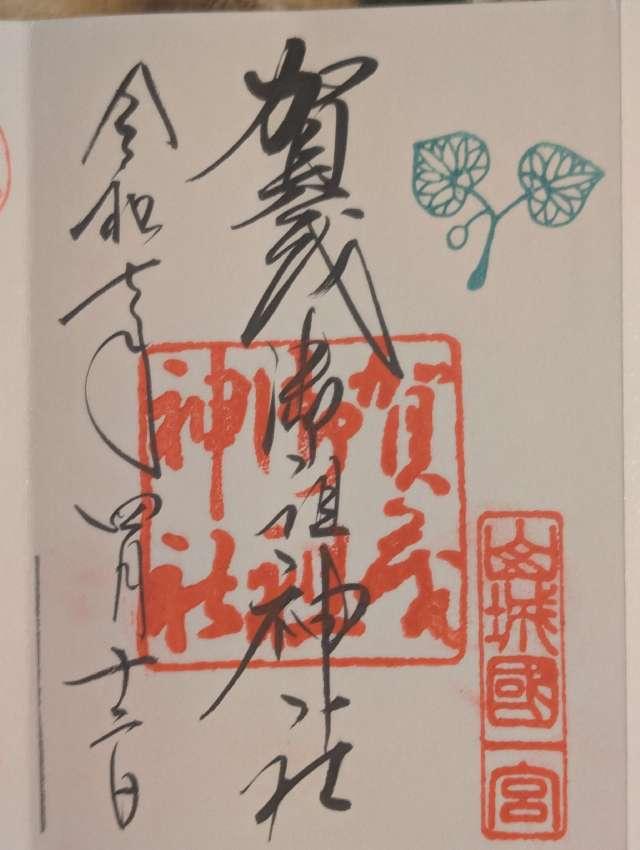 賀茂御祖神社
令和七年四月十二日
賀茂御祖神社
山城國一宮